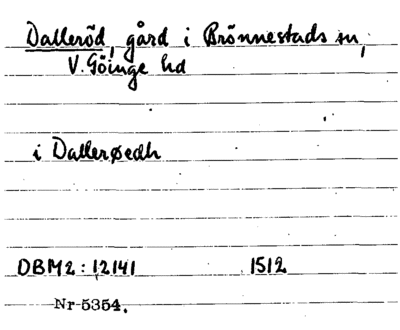 Dalleröd, gård i Brönnestads sn,
V. Göinge hd
i Dallerøedh
DBM2:12141 1512
Nr 5354.